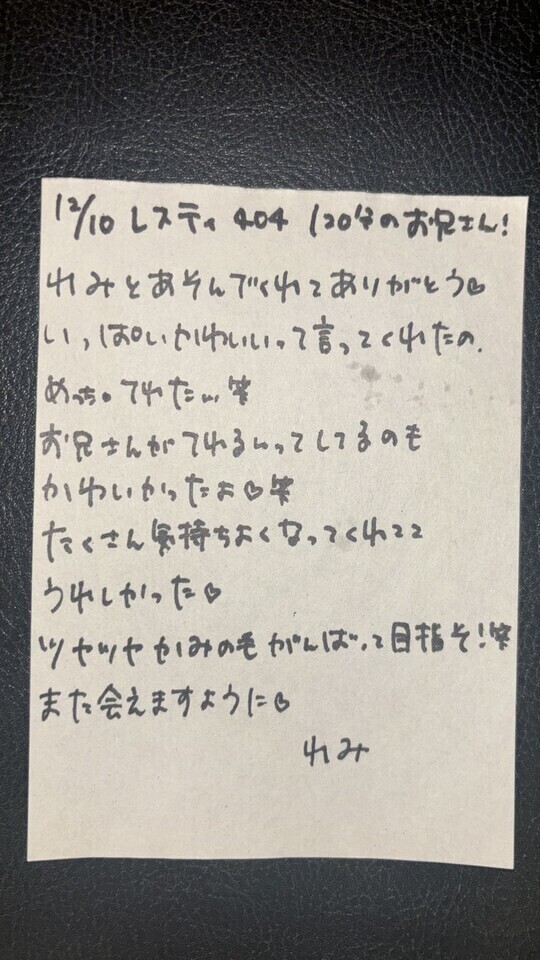 12/10 レスティ 404 120分のお兄さん!
れみとあそんでくれてありがとう♡
いっぱいかわいいって言ってくれたの、
めっちゃてれたぃぃ笑
お兄さんがてれるぃってしてるのも
かわいかったよ♡笑
たくさん気持ちよくなってくれてて
うれしかった♡
ツヤツヤかみの毛がんばって目指そ!笑
また会えますように♡
れみ